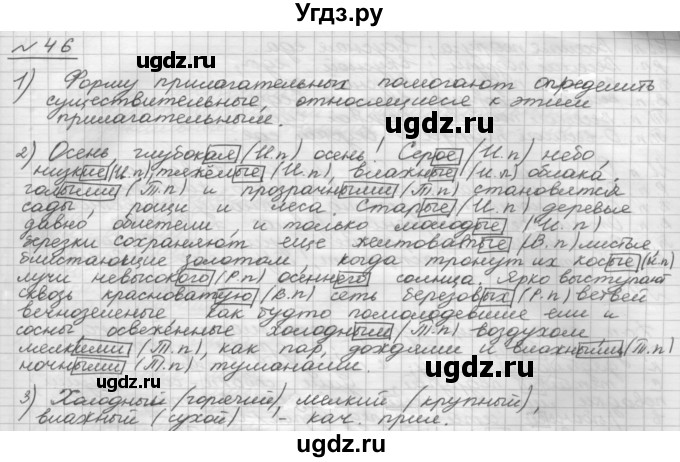 Угдз.ру
№ 46
1) Форму прилагательных помогают определить
существительные, относящиеся к этим
прилагательным.
2) Осень глубокая (И.п) осень! Серое (И.п) небо,
низкие (И.п), тяжёлые (И.п), влажные (И.п) облака,
голыми (Т.п) и прозрачными (Т.п) становятся
сады, рощи и леса. Старые (И.п) деревья
давно облетели, и только молодые (И.п)
березки сохраняют еще желтоватые (В.п) листья,
блистающие золотом, когда тронут их косые (И.п)
лучи невысокого (Р.п) осеннего солнца. Ярко выступают
сквозь красноватую (В.п) сеть березовых (Р.п) ветвей
вечнозеленые как будто помолодевшие ели и
сосны освежённые холодным (Т.п) воздухом
мелкими (Т.п), как пар, дождями и влажными (Т.п)
ночными (Т.п) туманами.
3) Холодный (горячий), мелкий (крупный),
влажный (сухой) - кач. прил.
ugdz.ru
ugdz.ru
ugdz.ru
ugdz.ru
ugdz.ru
ugdz.ru
ugdz.ru
ugdz.ru
ugdz.ru